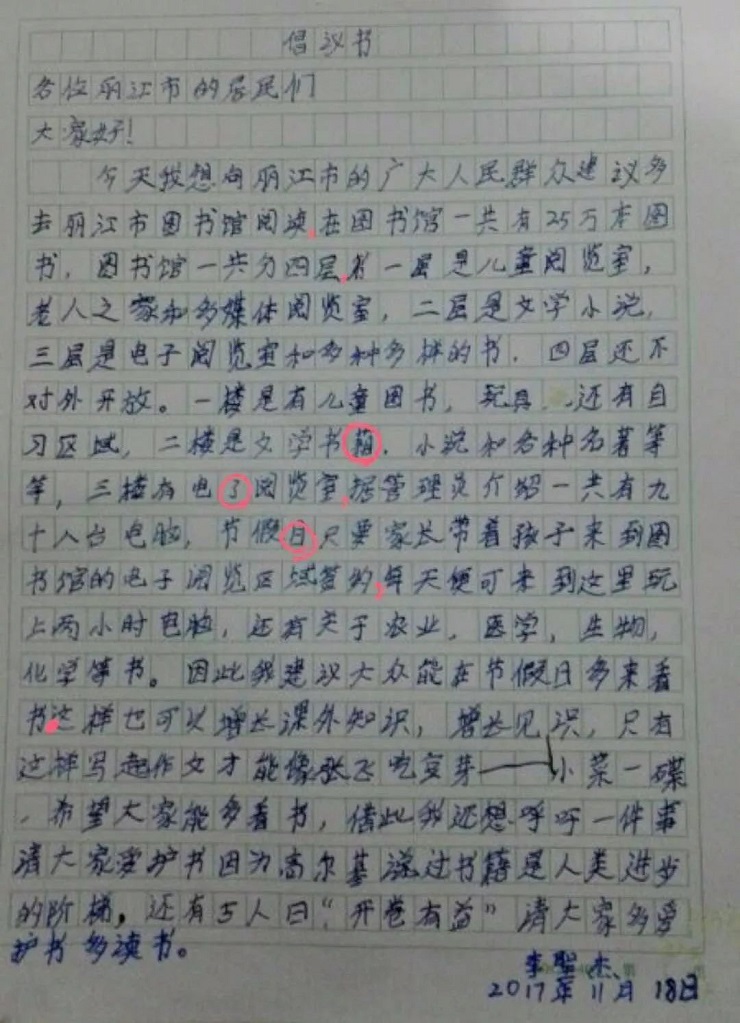 倡议书
各位丽江市的居民们
大家好！
今天我想向丽江市的广大人民群众建议多
去丽江市图书馆阅读,在图书馆一共有25万本图
书，图书馆一共分四层,第一层是儿童阅览室，
老人之家和多媒体阅览室，二层是文学小说，
三层是电子阅览室和多种多样的书．四层还不
对外开放。一楼是有儿童图书，玩具．还有自
习区域，二楼是文学书籍．小说和各种名著等
等，三楼有电子阅览室,据管理员介绍一共有九
十八台电脑，节假日只要家长带着孩子来到图
书馆的电子阅览区域签约,每天便可来到这里玩
上两小时电脑，还有关于农业．医学，生物，
化学等书。因此我建议大众能在节假日多来看
书.这样也可以增长课外知识，增长见识，只有
这样写起作文才能像张飞吃豆芽——小菜一碟
．希望大家能多看书，借此我还想呼吁一件事
请大家爱护书因为高尔基说过书籍是人类进步
的阶梯，还有古人曰“开卷有益”请大家多爱
护书多读书。
李聖杰
2017年11月18日